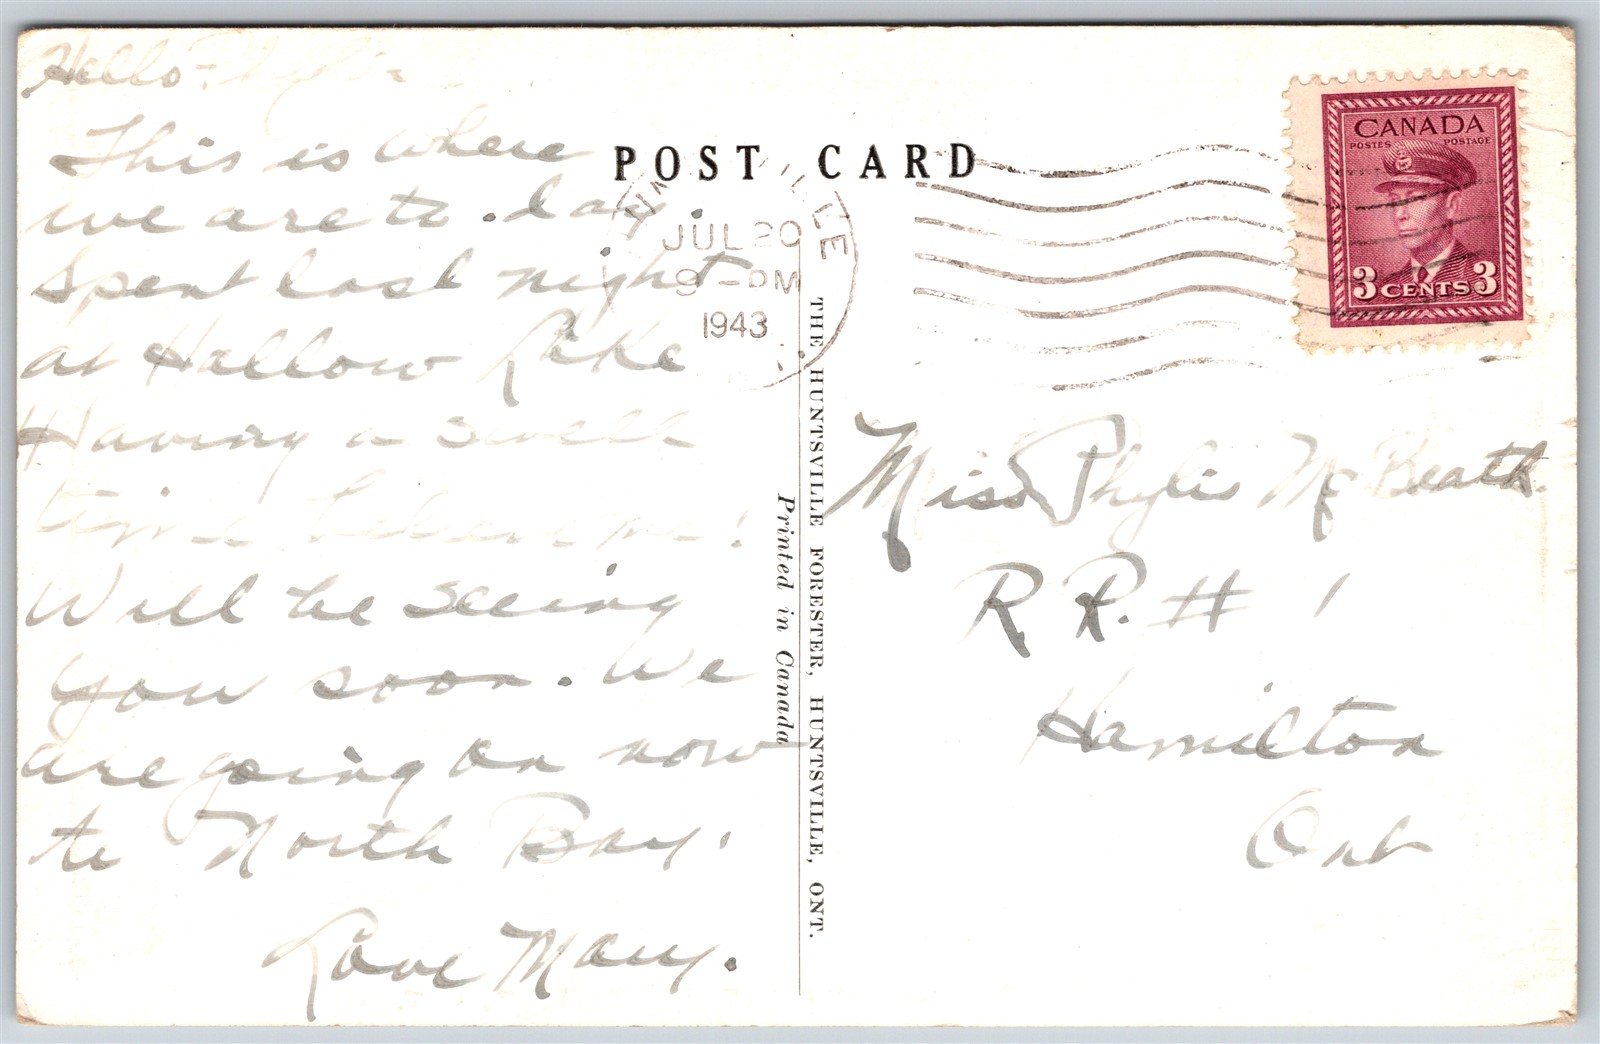 Hello - Phylis
This is where
we are to. day.
Spent last night
at Hallow Lake
Having a swell
time believe me!
Will be seeing
you soon. We
are going on now
to North Bay.
Love Mary.
POST CARD
JUL 20
9 - PM
1943
CANADA
POSTES POSTAGE
3 CENTS 3
THE HUNTSVILLE FORESTER, HUNTSVILLE, ONT.
Printed in Canada
Miss Phylis McBeath.
R R. # 1
Hamilton
Ont